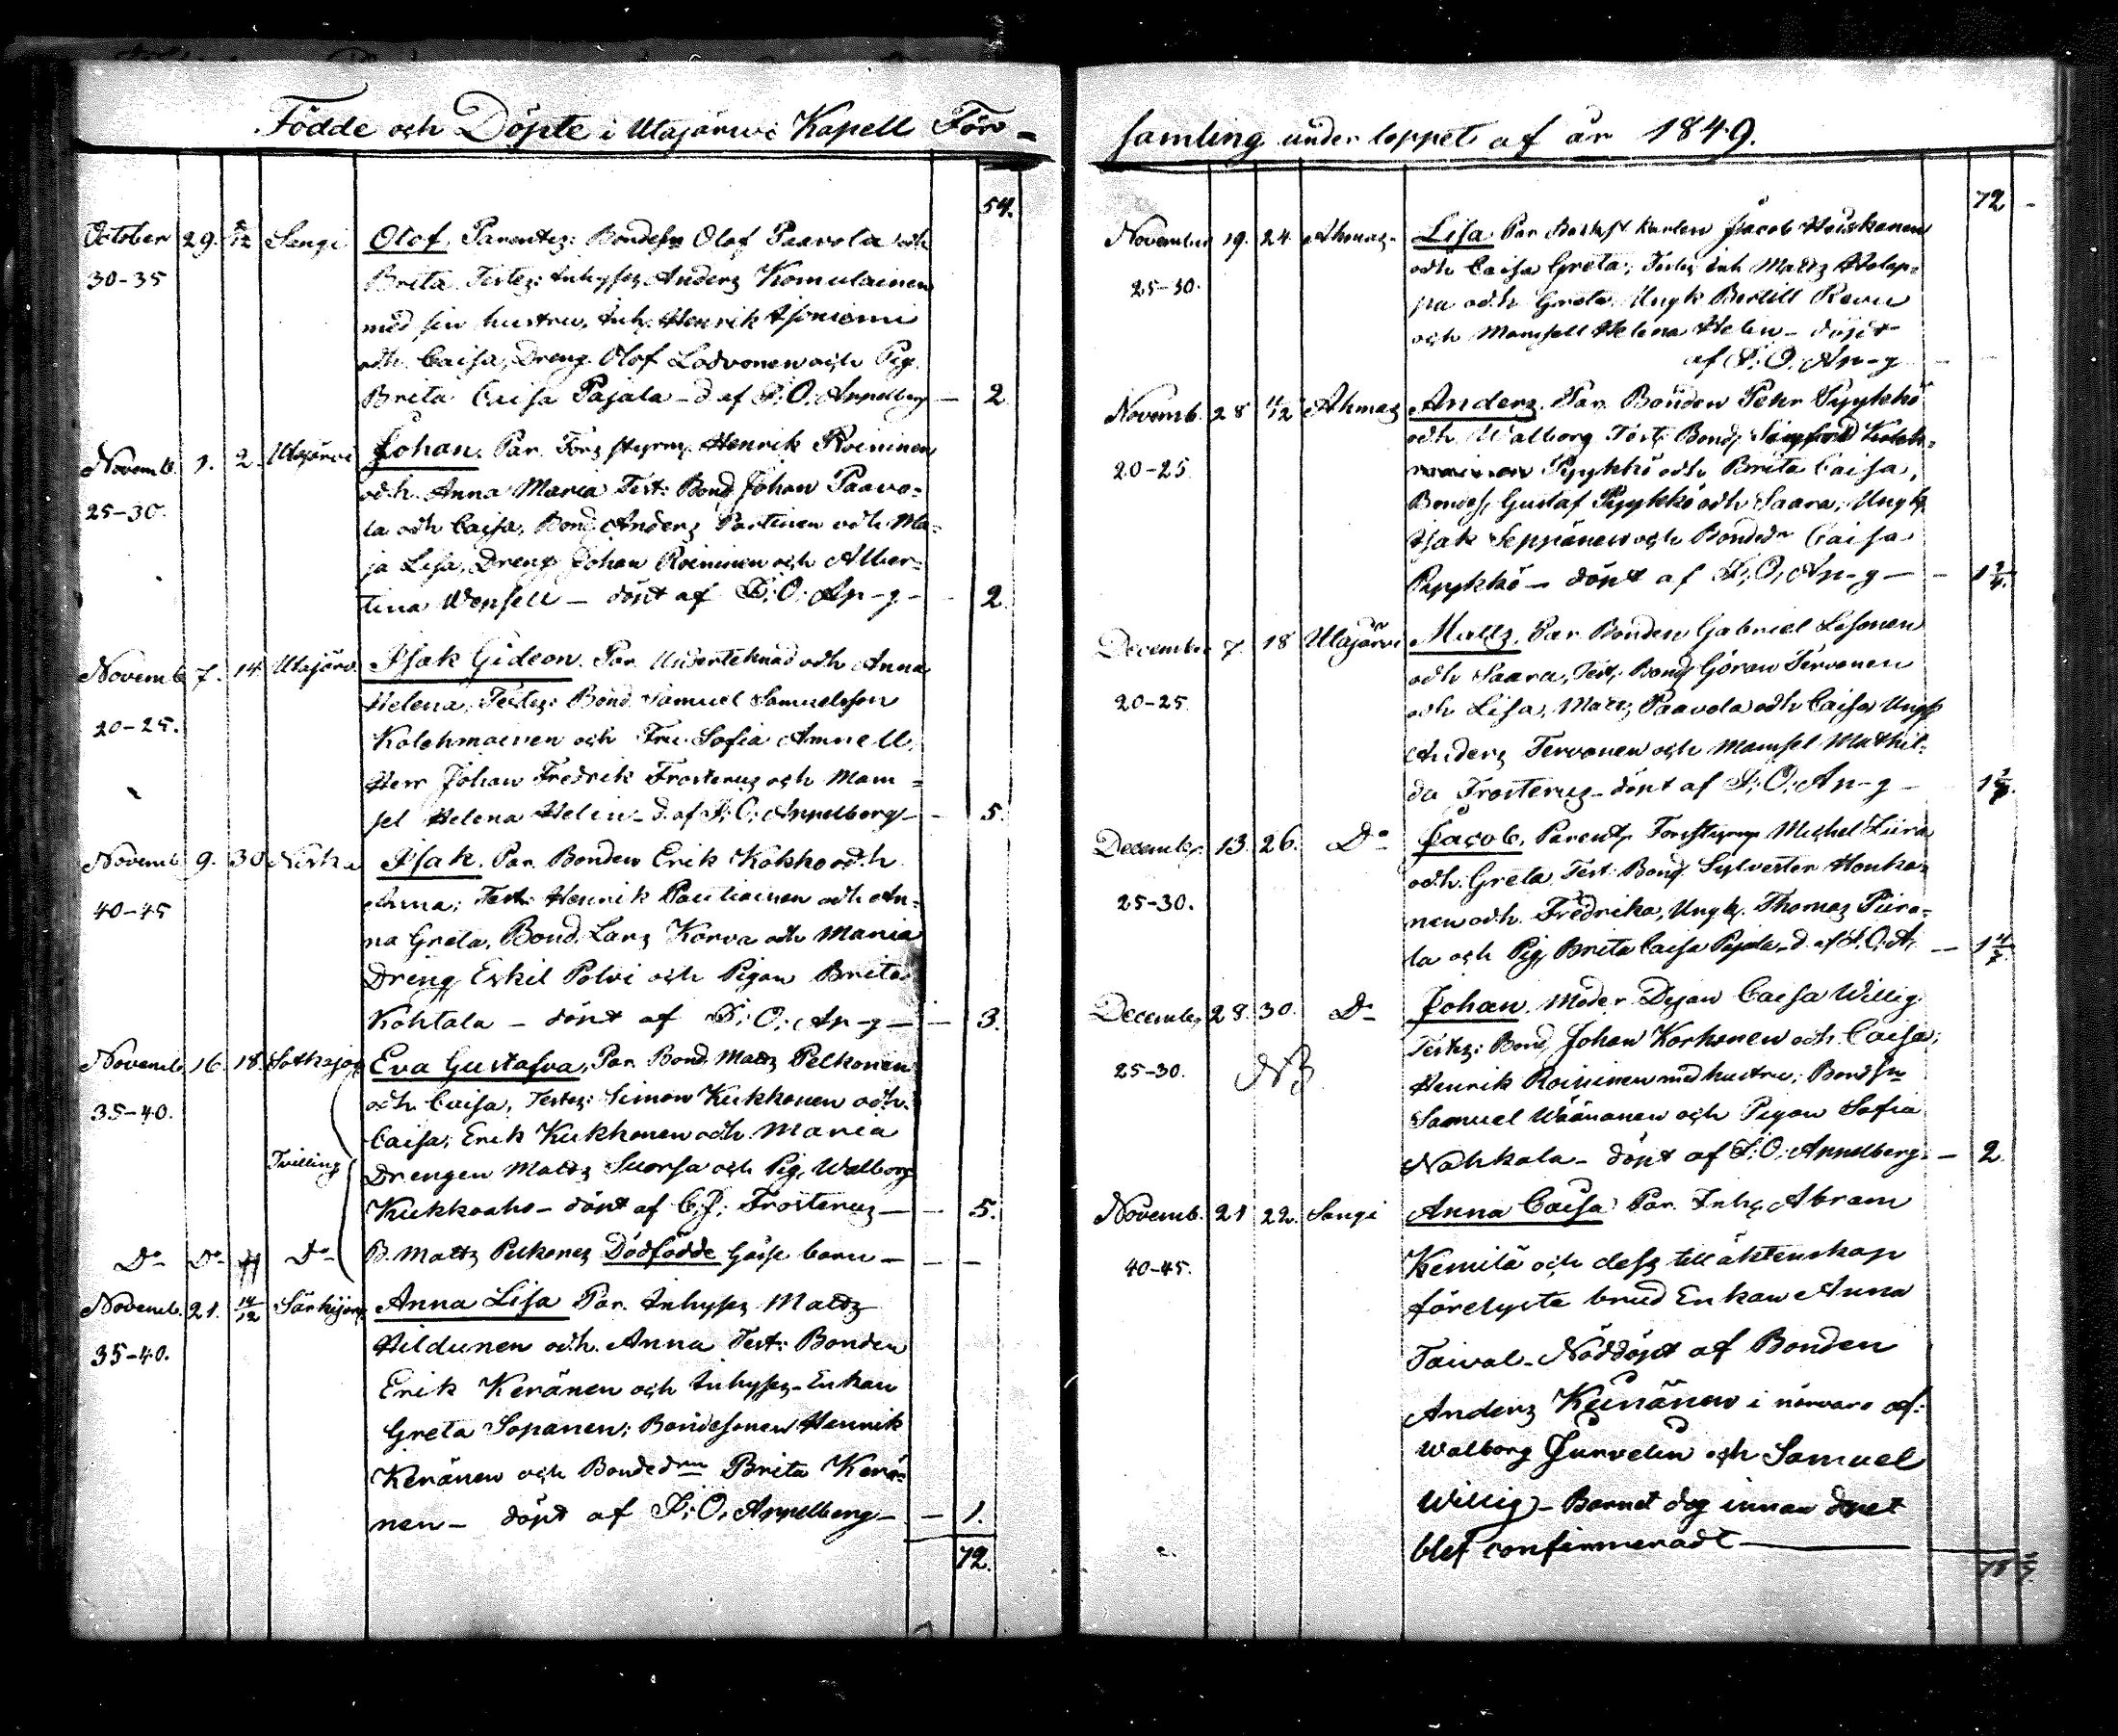 Födde och Döpte i Utajärwi Kapell För-
54.
October 29. Sangi Olof, Parentes: Bondeson Olof Paavola och
30-35 Brita. Testes: Inhyses Anders Komulainen
med sin hustru, Inh. Henrik
och Caisa, Dreng Olof och Pig.
Brita Caisa Pajala - d. af F. O. Appelberg - 2
Novemb. 1. 2. Utajärvi Johan. Par. Henrik Roininen
och Anna Maria Test: Bond. Johan Paavo-
25-30. la och Caisa, Bond. Anders Partinen och Ma-
ja Lisa, Dreng Johan Roininen och Alber-
tina - döpt af F. O. Ap-g - 2.
Novemb. 7. 14. Utajärv. Isak Gideon. Par. Underteknad och Anna
Helena, Testes: Bond. Samuel Samuelsson
20-25. Kolehmainen och Fru Sofia Amnell,
Herr Johan Fredrik Frosterus och Mam-
sel Helena Helin - d. af F. O. Appelberg - 5.
Novemb. 9. 30 Isak. Par. Bonden Erik Kokko och
40-45 Anna; Test: Henrik och An-
na Greta, Bond. Lars Korva och Maria
Dreng Eskil Polvi och Pigan Brita
Kohtala - döpt af F. O. Ap-g - 3.
Novemb. 16. 18. Eva Gustafva, Par. Bond. Matts Pelkonen
35-40. och Caisa, Testes: Simon Kukkonen och
Caisa; Erik Kukkonen och Maria
Tvilling Drengen Matts Suorsa och Pig. Walborg
Kukkoaho - döpt af C. J. Frosterus - 5.
Do Do Do B. Matts Pelkones Dödfödde barn -
Novemb. 21. 14/12 Anna Lisa Par. Inhyses Matts
Hildunen och Anna Test: Bonden
35-40. Erik Keränen och Inhyses-Enkan
Greta Sopanen; Bondesonen Henrik
Keränen och Bondedrn Brita Kerä-
nen - döpt af F. O. Appelberg - 1.
72.
samling under loppet af år 1849.
72
November 19. 24. Ahmas Lisa Par. Karlen Jacob Heiskanen
och Caisa Greta; Testes Inh Matts
25-30. och Greta Ungk Bertill
och Mamsell Helena Helin - döpt
af F. O. Ap-g -
Novemb. 28 Ahmas Anders. Par. Bonden Pehr Pyykkö
och Walborg Test: Bond.
20-25. Pyykkö och Brita Caisa,
Bondes. Gustaf Pyykkö och Saara, Ungk
Isak Seppänen och Bondedr Caisa
Pyykkö - döpt af F. O. Ap-g -
December 7. 18 Utajärvi Matts, Par. Bonden Gabriel
och Saara, Test: Bond Göran Tervonen
20-25. och Lisa, Matts Paavola och Caisa Ungk
Anders Tervonen och Mamsel Mathil-
da Frosterus - döpt af F. O. Ap-g -
December 13. 26. Do Jacob, Parent. Michel
och Greta Test: Bond. Sylvester Honka-
25-30. nen och Fredrika, Ungk. Thomas
la och Pig. Brita Caisa Pajala, d. af F. O. A. -
December 28. 30. Do Johan. Moder Caisa Willig
Testes: Bond. Johan Korhonen och Caisa;
25-30. NB Henrik Roininen med hustru; Bondsn
Samuel Wäänänen och Pigan Sofia
Nahkala - döpt af F. O. Appelberg - 2
Novemb. 21 22. Sangi Anna Caisa Par. Inhs Abram
40-45. Kemilä och dess till äktenskap
förelyste brud Enkan Anna
Taival - Nöddöpt af Bonden
Anders i närvaro af:
Walborg Jurvelin och Samuel
Willig - Barnet dog innan dopet
blef confirmeradt